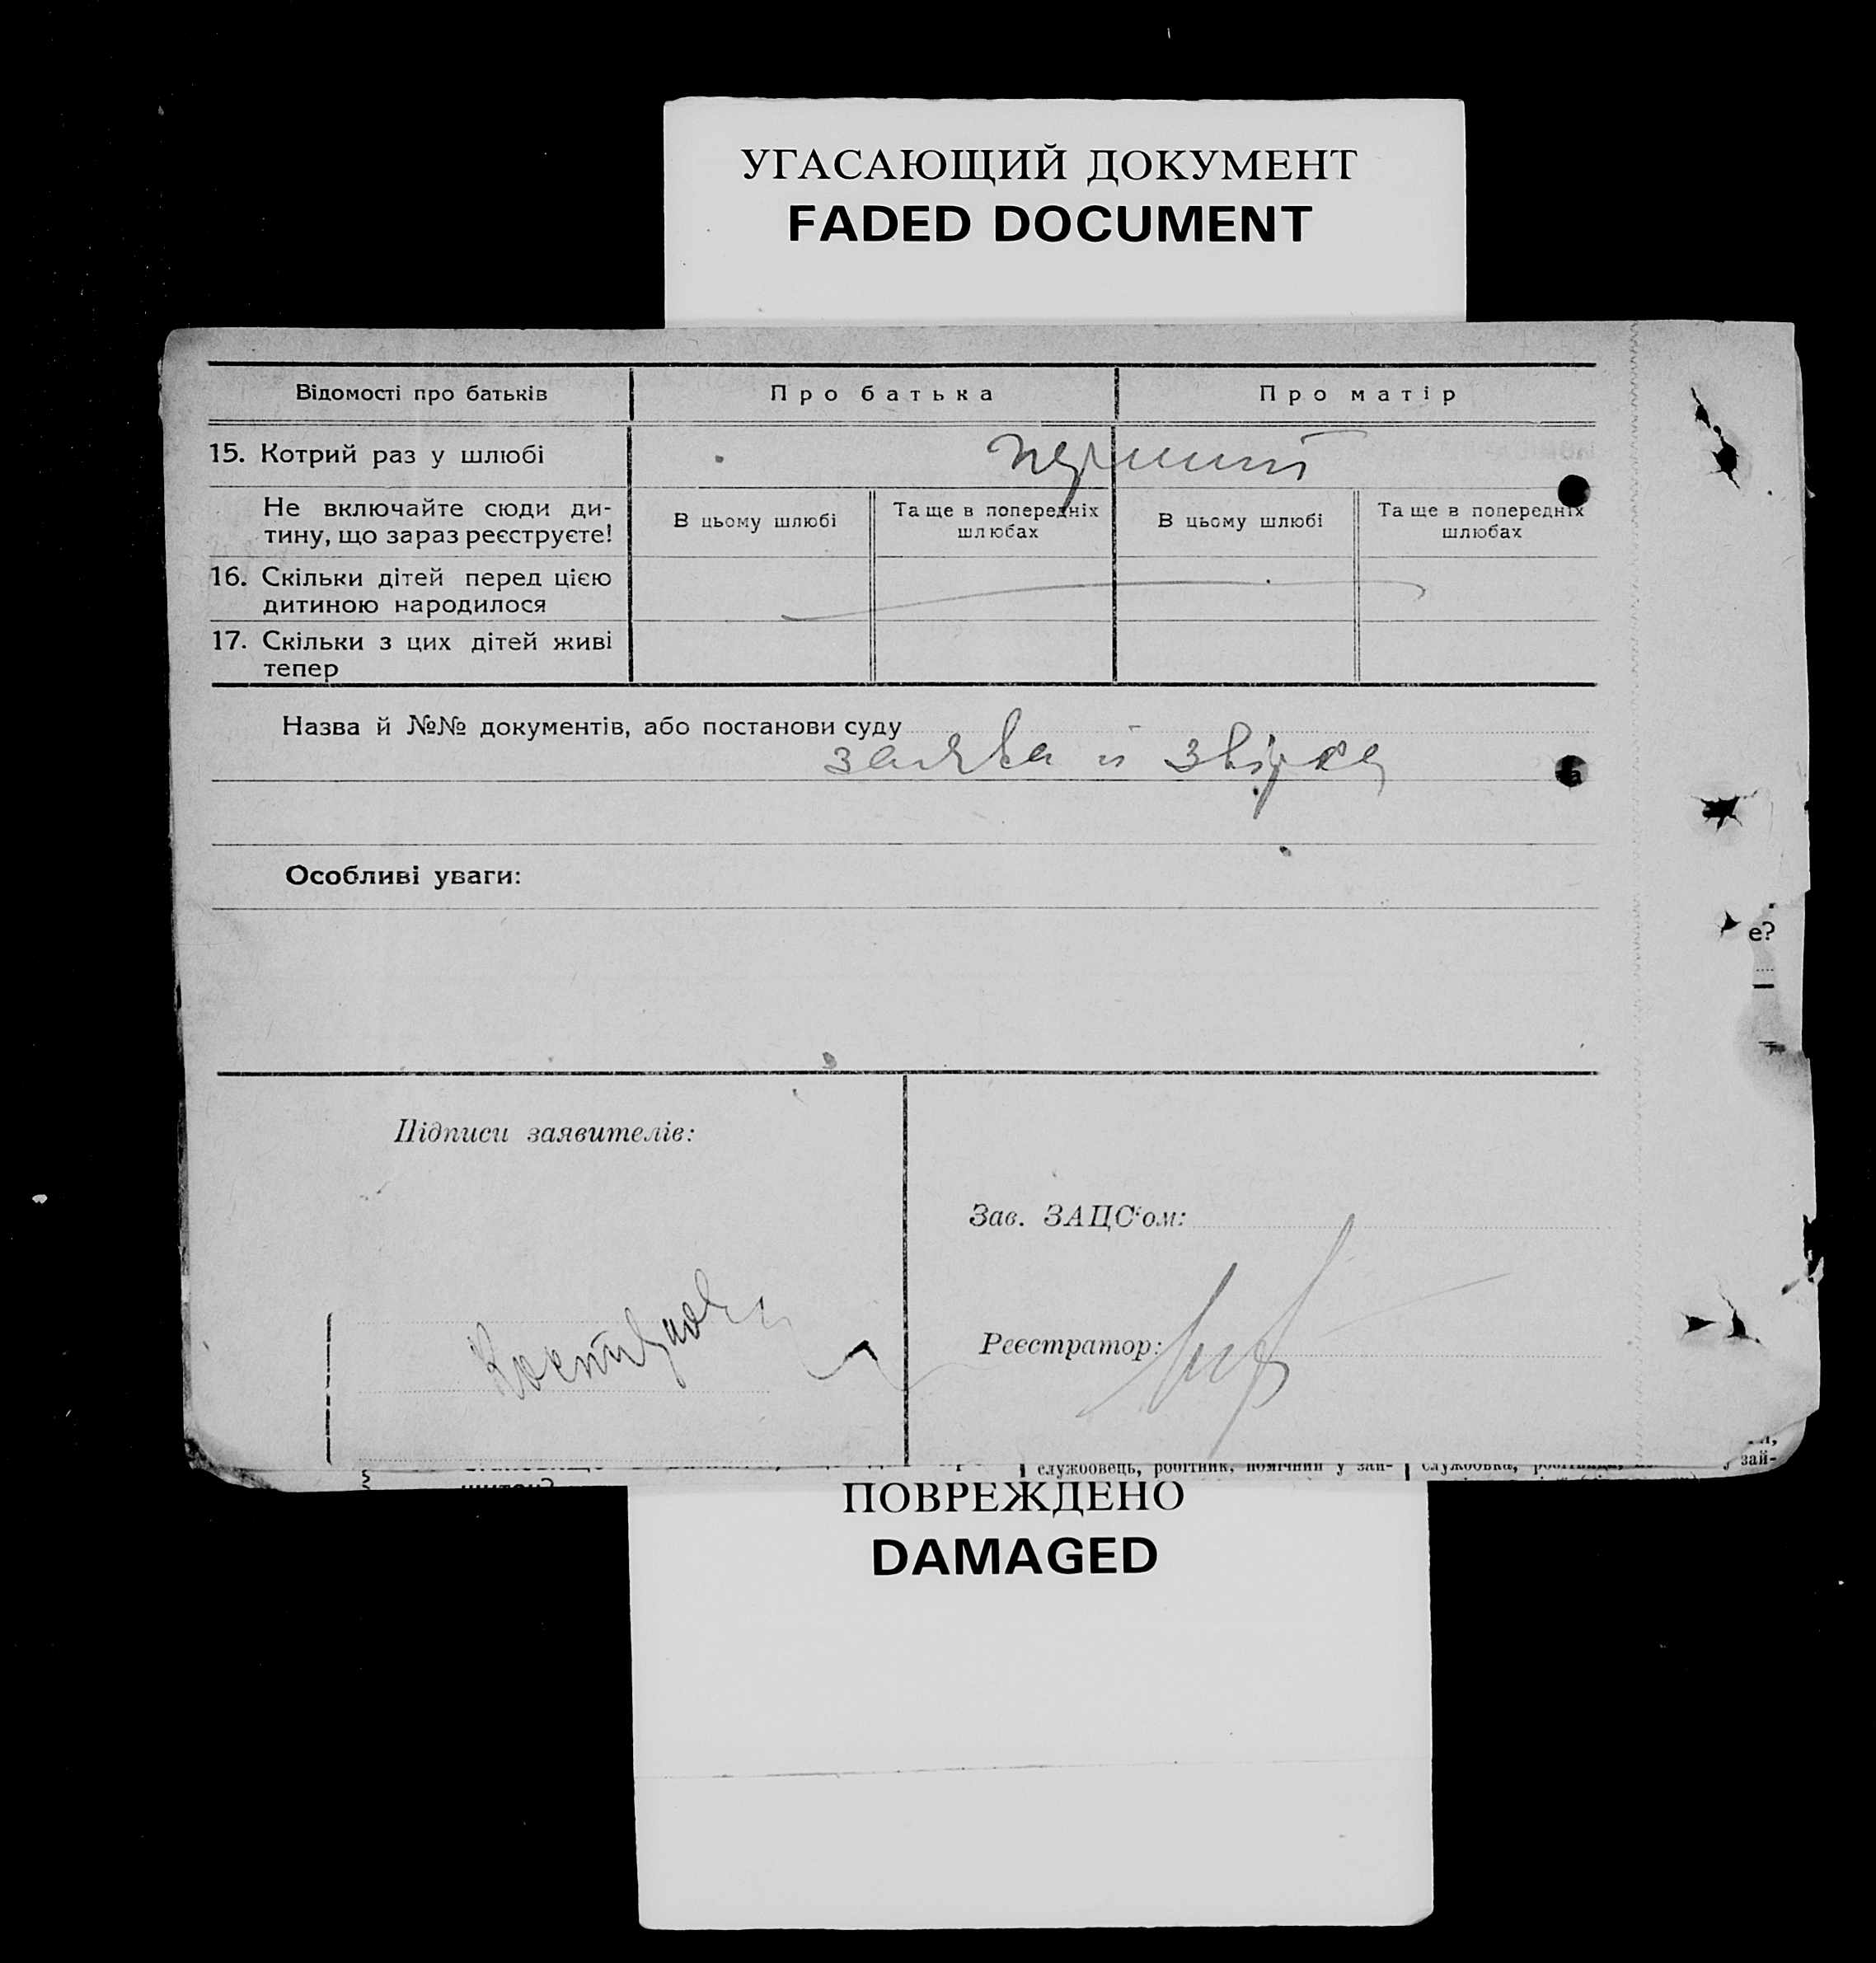 УГАСАЮЩИЙ ДОКУМЕНТ
FADED DOCUMENT
Відомості про батьків
Про батька
Про матір
15. Котрий раз у шлюбі
перший
Не включайте сюди ди-
тину, що зараз реєструєте!
В цьому шлюбі
Та ще в попередніх
шлюбах
В цьому шлюбі
Та ще в попередніх
шлюбах
16. Скільки дітей перед цією
дитиною народилося
17. Скільки з цих дітей живі
тепер
Назва й №№ документів, або постанови суду
заява й
Особливі уваги:
е?
Підписи заявителів:
Зав. ЗАЦС'ом:
Реєстратор:
службовець, робітник, помічний у зай-
службовка,
у зай-
ПОВРЕЖДЕНО
DAMAGED